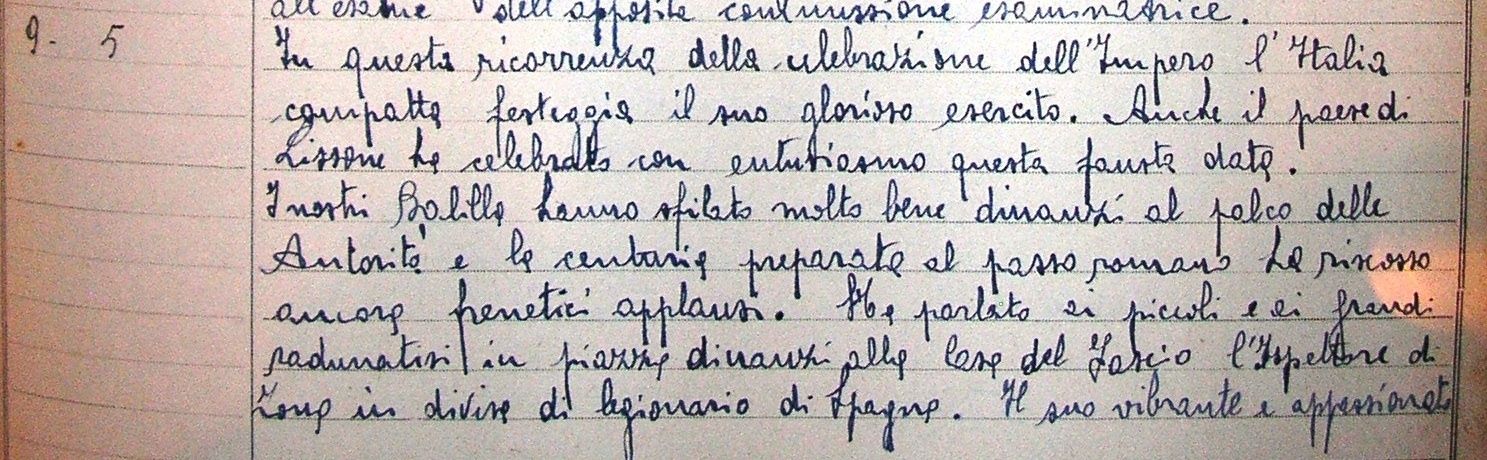 all'esame dell'apposita commissione esaminatrice.
9. 5 In questa ricorrenza della celebrazione dell'Impero l'Italia
compatta festeggia il suo glorioso esercito. Anche il paese di
Lissone ha celebrato con entusiasmo questa fausta data.
I nostri Balilla hanno sfilato molto bene dinanzi al palco delle
Autorità e la centuria preparata al passo romano ha riscosso
ancora frenetici applausi. Ha parlato ai piccoli e ai grandi
radunatisi in piazza dinanzi alla Casa del Fascio l'Ispettore di
Zona in divisa di legionario di Spagna. Il suo vibrante e appassionato